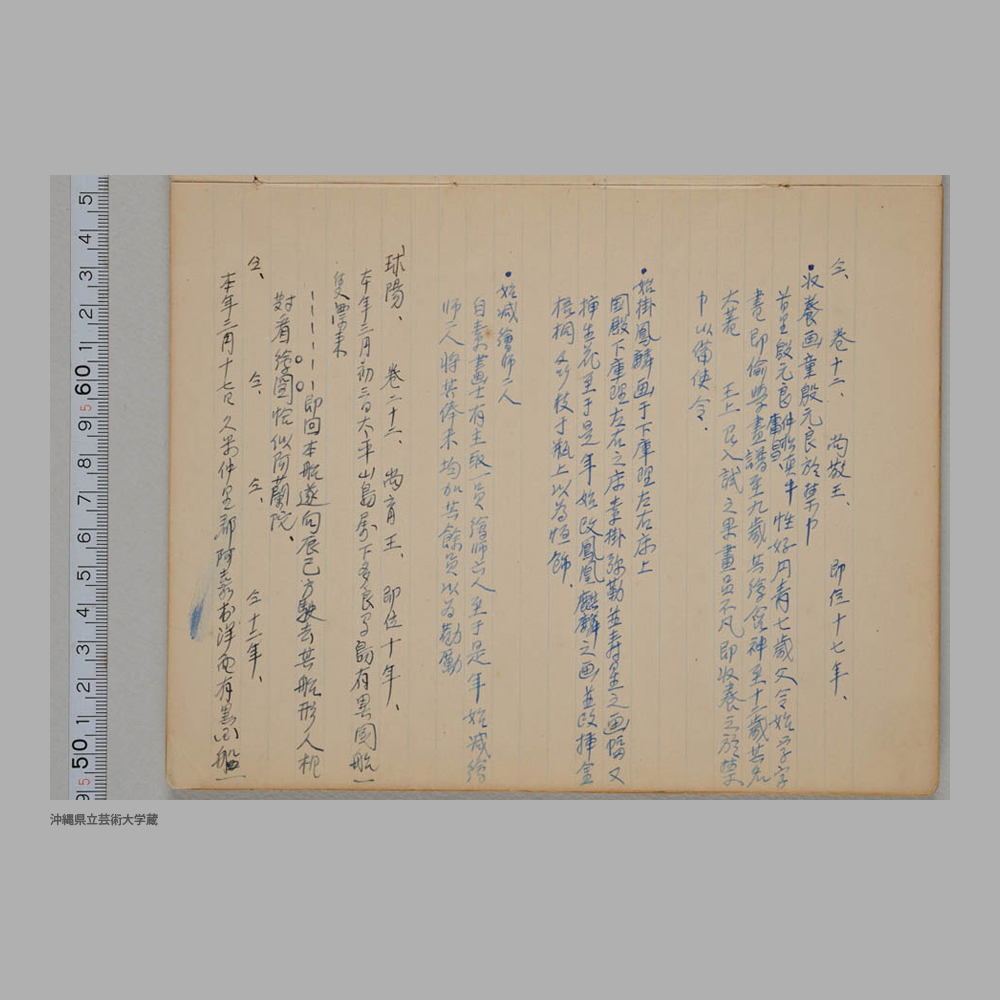 仝、 巻十二、 尚敬王、 即位十七年、
・収養画童殷元良於禁巾
昔呈殷元良 仲 真牛 性好丹青七歳父令始学字
書即偷學畫譜至九歳其絵 神至十二歳其名
大著 王上召入試之果畫品不凡即收養之於禁
巾以備使令．
・始掛鳳麟画于下庫理左右床上
国殿下庫理左右之床素掛弥勒並寿星之画幅又
挿生花至于是年始改鳳凰麒麟之画並改挿金
梧桐 枝于瓶上以為恒飾．
・始减繪師二人
自素畫士有主取一員繪師六人至于是年始减繪
師二人将其俸米均加其餘員以為勧勵
球陽、 巻二十二、 尚育王、 即位十年、
本年三月初三日太平山島属下多良間島有異国船一
隻飄来
－－－－－即回本船遂向辰巳方駛去其船形人相
対看絵圖恰似阿蘭陀、
仝、 仝、 仝、 仝十二年、
本年三月十七日久米仲里郡阿嘉村洋面有異国船一
50 60
沖縄県立芸術大学蔵